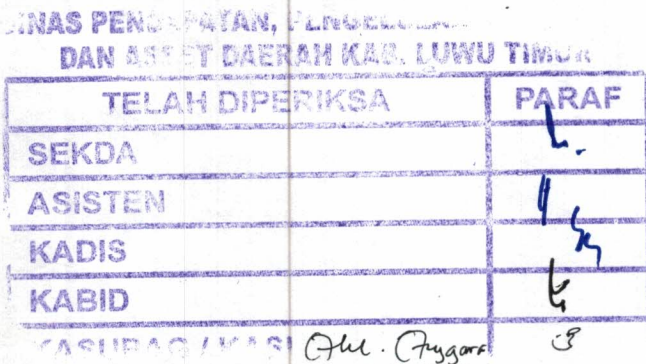 DINAS PENDAPATAN,
DAN ASSET DAERAH KAB. LUWU TIMUR
TELAH DIPERIKSA PARAF
SEKDA
ASISTEN
KADIS
KABID
KASUBAG / KASI